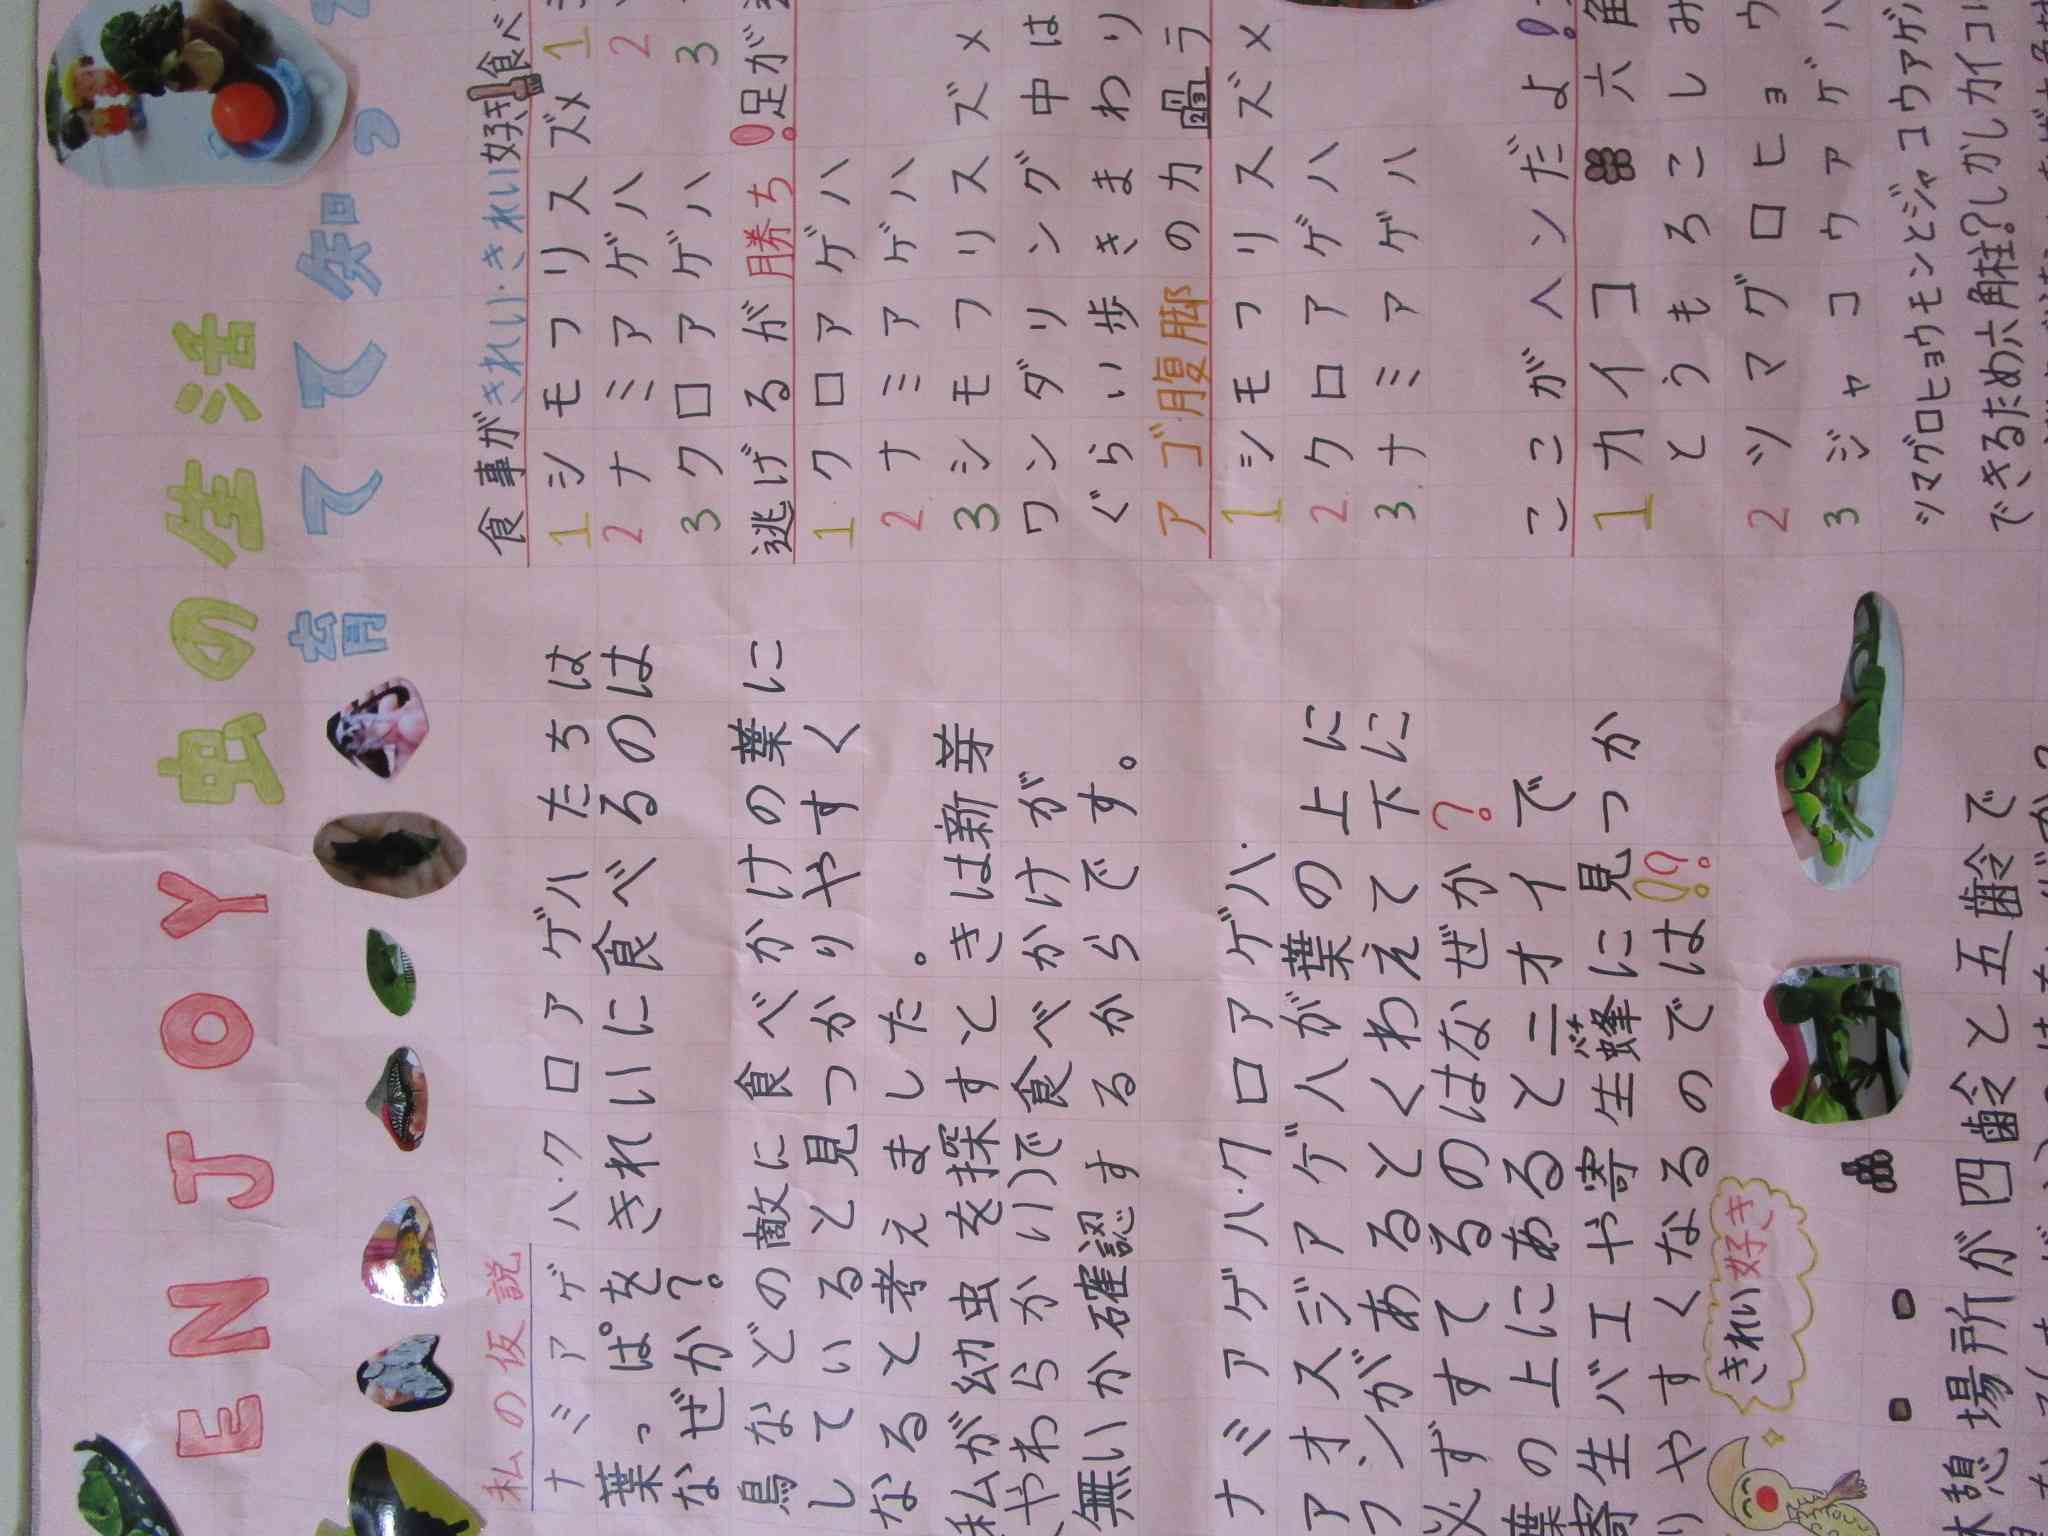 ENJOY 虫の生活
育てて知っ
私の仮説
ナミアゲハ・クロアゲハたちは
葉っぱをきれいに食べるのは
なぜか?
鳥などの敵に食べかけの葉に
していると見つかりやすく
なると考えました。
私が幼虫を探すときは新芽
(やわらかい)で食べかけが
無いか確認するからです。
ナミアゲハ・クロアゲハ・
アオスジアゲハが葉の上に
フンがあるとくわえて下に
必ずすてるのはなぜか?
葉の上にあるとニオイで
寄生バエや寄生蜂に見つか
りやすくなるのでは!?
きれい好き
休憩場所が四齢と五齢で
食事がきれい・きれい好き
1 シモフリスズメ
2 ナミアゲハ
3 クロアゲハ
食べ
1
2
3
逃げるが勝ち!
足が
1 クロアゲハ
2 ナミアゲハ
3 シモフリスズメ
ワンダリング中は
ぐらい歩きまわり
アゴ・腹脚の力
ラ
1 シモフリスズメ
2 クロアゲハ
3 ナミアゲハ
ここがヘンだよ!
1 カイコ 六角
とうもろこしみ
2 ツマグロヒョウ
3 ジャコウアゲハ
ツマグロヒョウモンとジャコウアゲハ
できるため六角柱?しかしカイコに